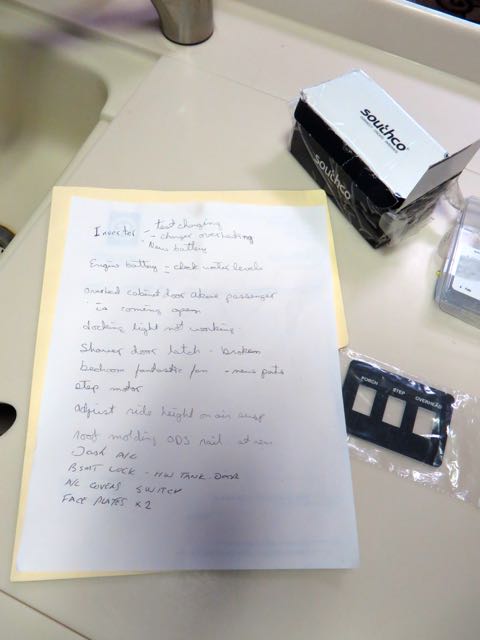 southco
southco
Inverter - test charging
- charger overheating
New battery
Engine battery - check water levels
overhead cabinet door above passenger
is coming open
docking light not working
Shower door latch - broken
bedroom fantastic fan - new parts
step motor
adjust ride height on air susp
roof molding ODS rail at rear
Dash A/C
BSMT LOCK - HW TANK DOOR
A/C COVERS SWITCH
FACE PLATES x 2
PORCH STEP OVERHEAD